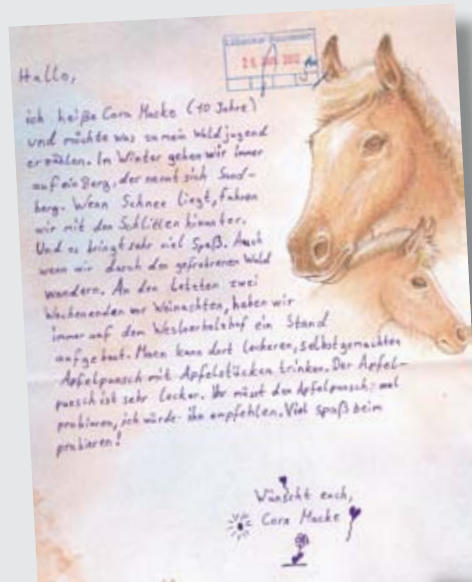 Lübecker Bauverein
Hallo,
ich heiße Cora Macke (10 Jahre)
und möchte was zu mein Waldjugend
erzählen. Im Winter gehen wir immer
auf ein Berg, der nennt sich Sand-
berg. Wenn Schnee liegt, fahren
wir mit den Schlitten hinunter.
Und es bringt sehr viel Spaß. Auch
wenn wir durch den gefrohrenen Wald
wandern. An den letzten zwei
Wochenenden vor Weinachten, haben wir
immer auf dem ein Stand
aufgebaut. Maen kann dort leckeren, selbstgemachten
Apfelpunsch mit Apfelstücken trinken. Der Apfel-
punsch ist sehr lecker. Ihr müsst den Apfelpunsch mal
probieren, ich würde ihn empfehlen. Viel spaß beim
probieren!
Wünscht euch,
Cora Macke